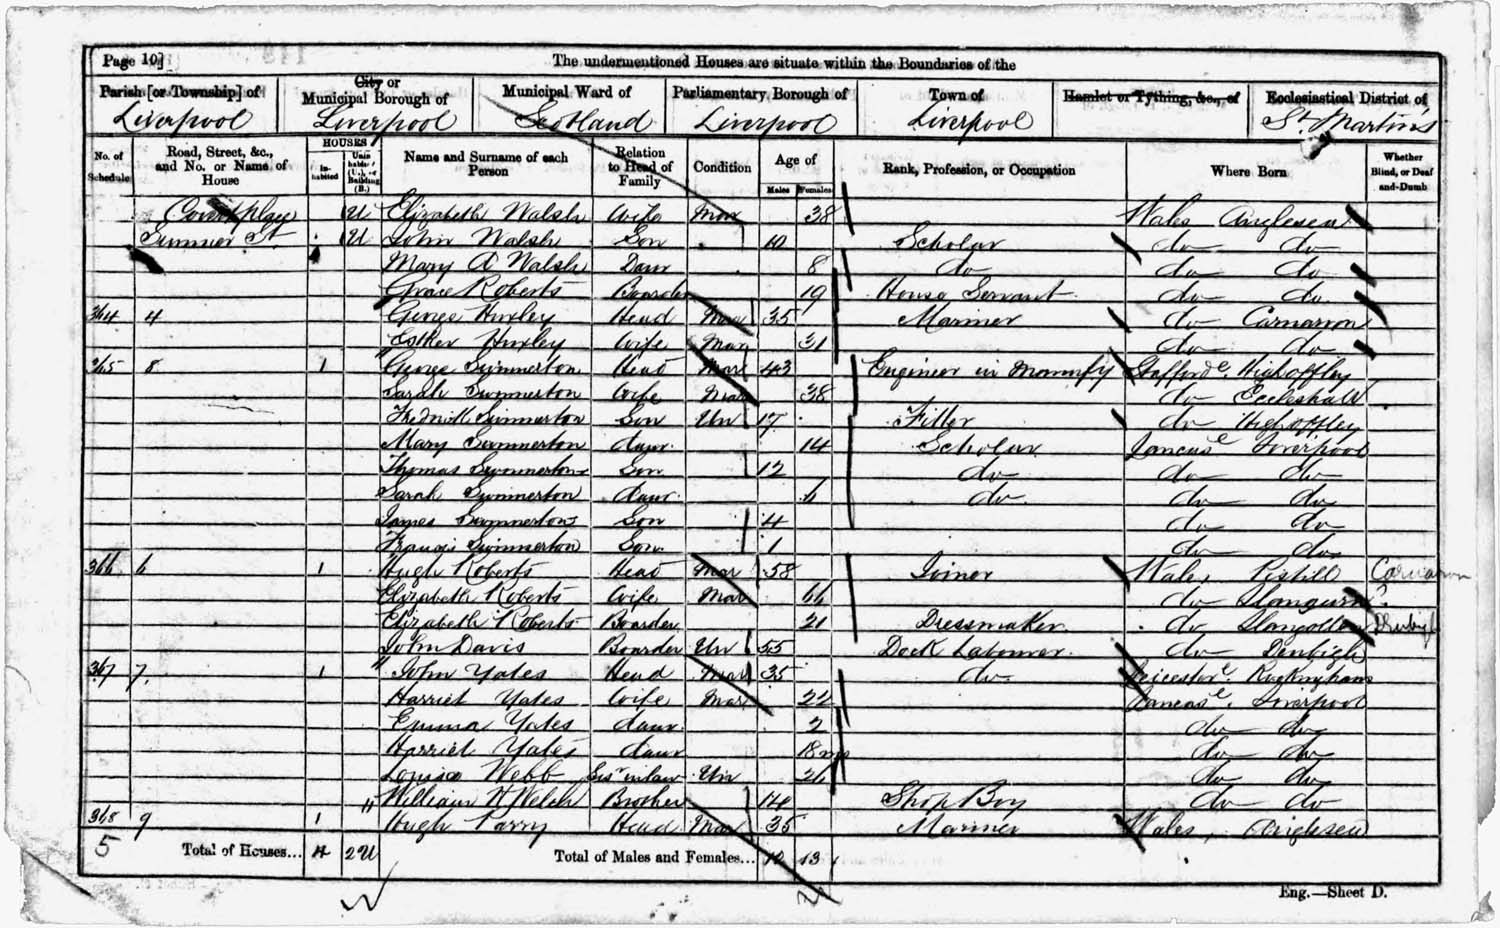 Page 10]
The undermentioned Houses are situate within the Boundaries of the
Parish [or Township] of
Liverpool
City or Municipal Borough of
Liverpool
Municipal Ward of
Scotland
Parliamentary Borough of
Liverpool
Town of
Liverpool
Hamlet or Tything, &c., of
Ecclesiastical District of
St Martins
No. of Schedule
Road, Street, &c., and No. or Name of House
HOUSES
In-habited
Unin-habited (U.), or Building (B.)
Name and Surname of each Person
Relation to Head of Family
Condition
Age of
Males
Females
Rank, Profession, or Occupation
Where Born
Whether Blind, or Deaf-and-Dumb
U Elizabeth Walsh Wife Mar 38 Wales Anglesea
Summer St U John Walsh Son 10 Scholar do do
Mary A Walsh Daur 8 do do do
Grace Roberts Boarder 19 House Servant do do
364 4 Huxley Head Mar 35 Mariner do Carnarvon
Esther Huxley Wife Mar 31 do do
365 8 1 George Summerton Head Mar 43 Engineer in Staffords High Offley
Sarah Summerton Wife Mar 38 do Eccleshall
Summerton Son Un 17 Fitter do High Offley
Mary Summerton daur 14 Scholar Lancase Liverpool
Thomas Summerton Son 12 do do do
Sarah Summerton daur 6 do do do
James Summerton Son 4 do do
Francis Summerton Son 1 do do
366 6 1 Hugh Roberts Head Mar 58 Joiner Wales Pistill Carnarvon
Elizabeth Roberts Wife Mar 66 do
Elizabeth Roberts Boarder 21 Dressmaker do Llangollen Denbigh
John Davis Boarder Un 55 Dock Labourer do Denbigh
367 7 1 " John Yates Head Mar 35 do Leicestere
Harriet Yates Wife Mar 22 Lancase Liverpool
Emma Yates daur 2 do do
Harriet Yates daur 18 mos do do
Louisa Webb Sisr in law Un 26 do do
" William H Welch Brother 14 Shop Boy do do
368 9 1 Hugh Parry Head Mar 35 Mariner Wales, Anglesea
5 Total of Houses... 4 2U Total of Males and Females... 12 13
Eng.—Sheet D.